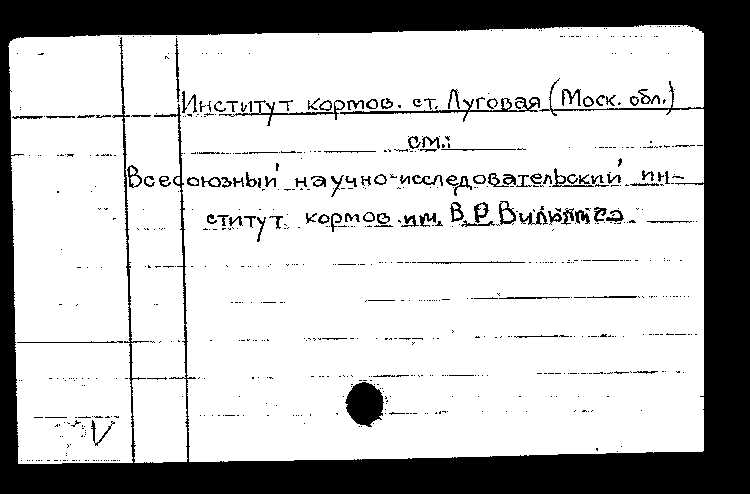 Институт кормов. ст. Луговая (Моск. обл.)
см.:
Всесоюзный научно-исследовательский ин-
ститут кормов им. В.Р. Вильямса.
V